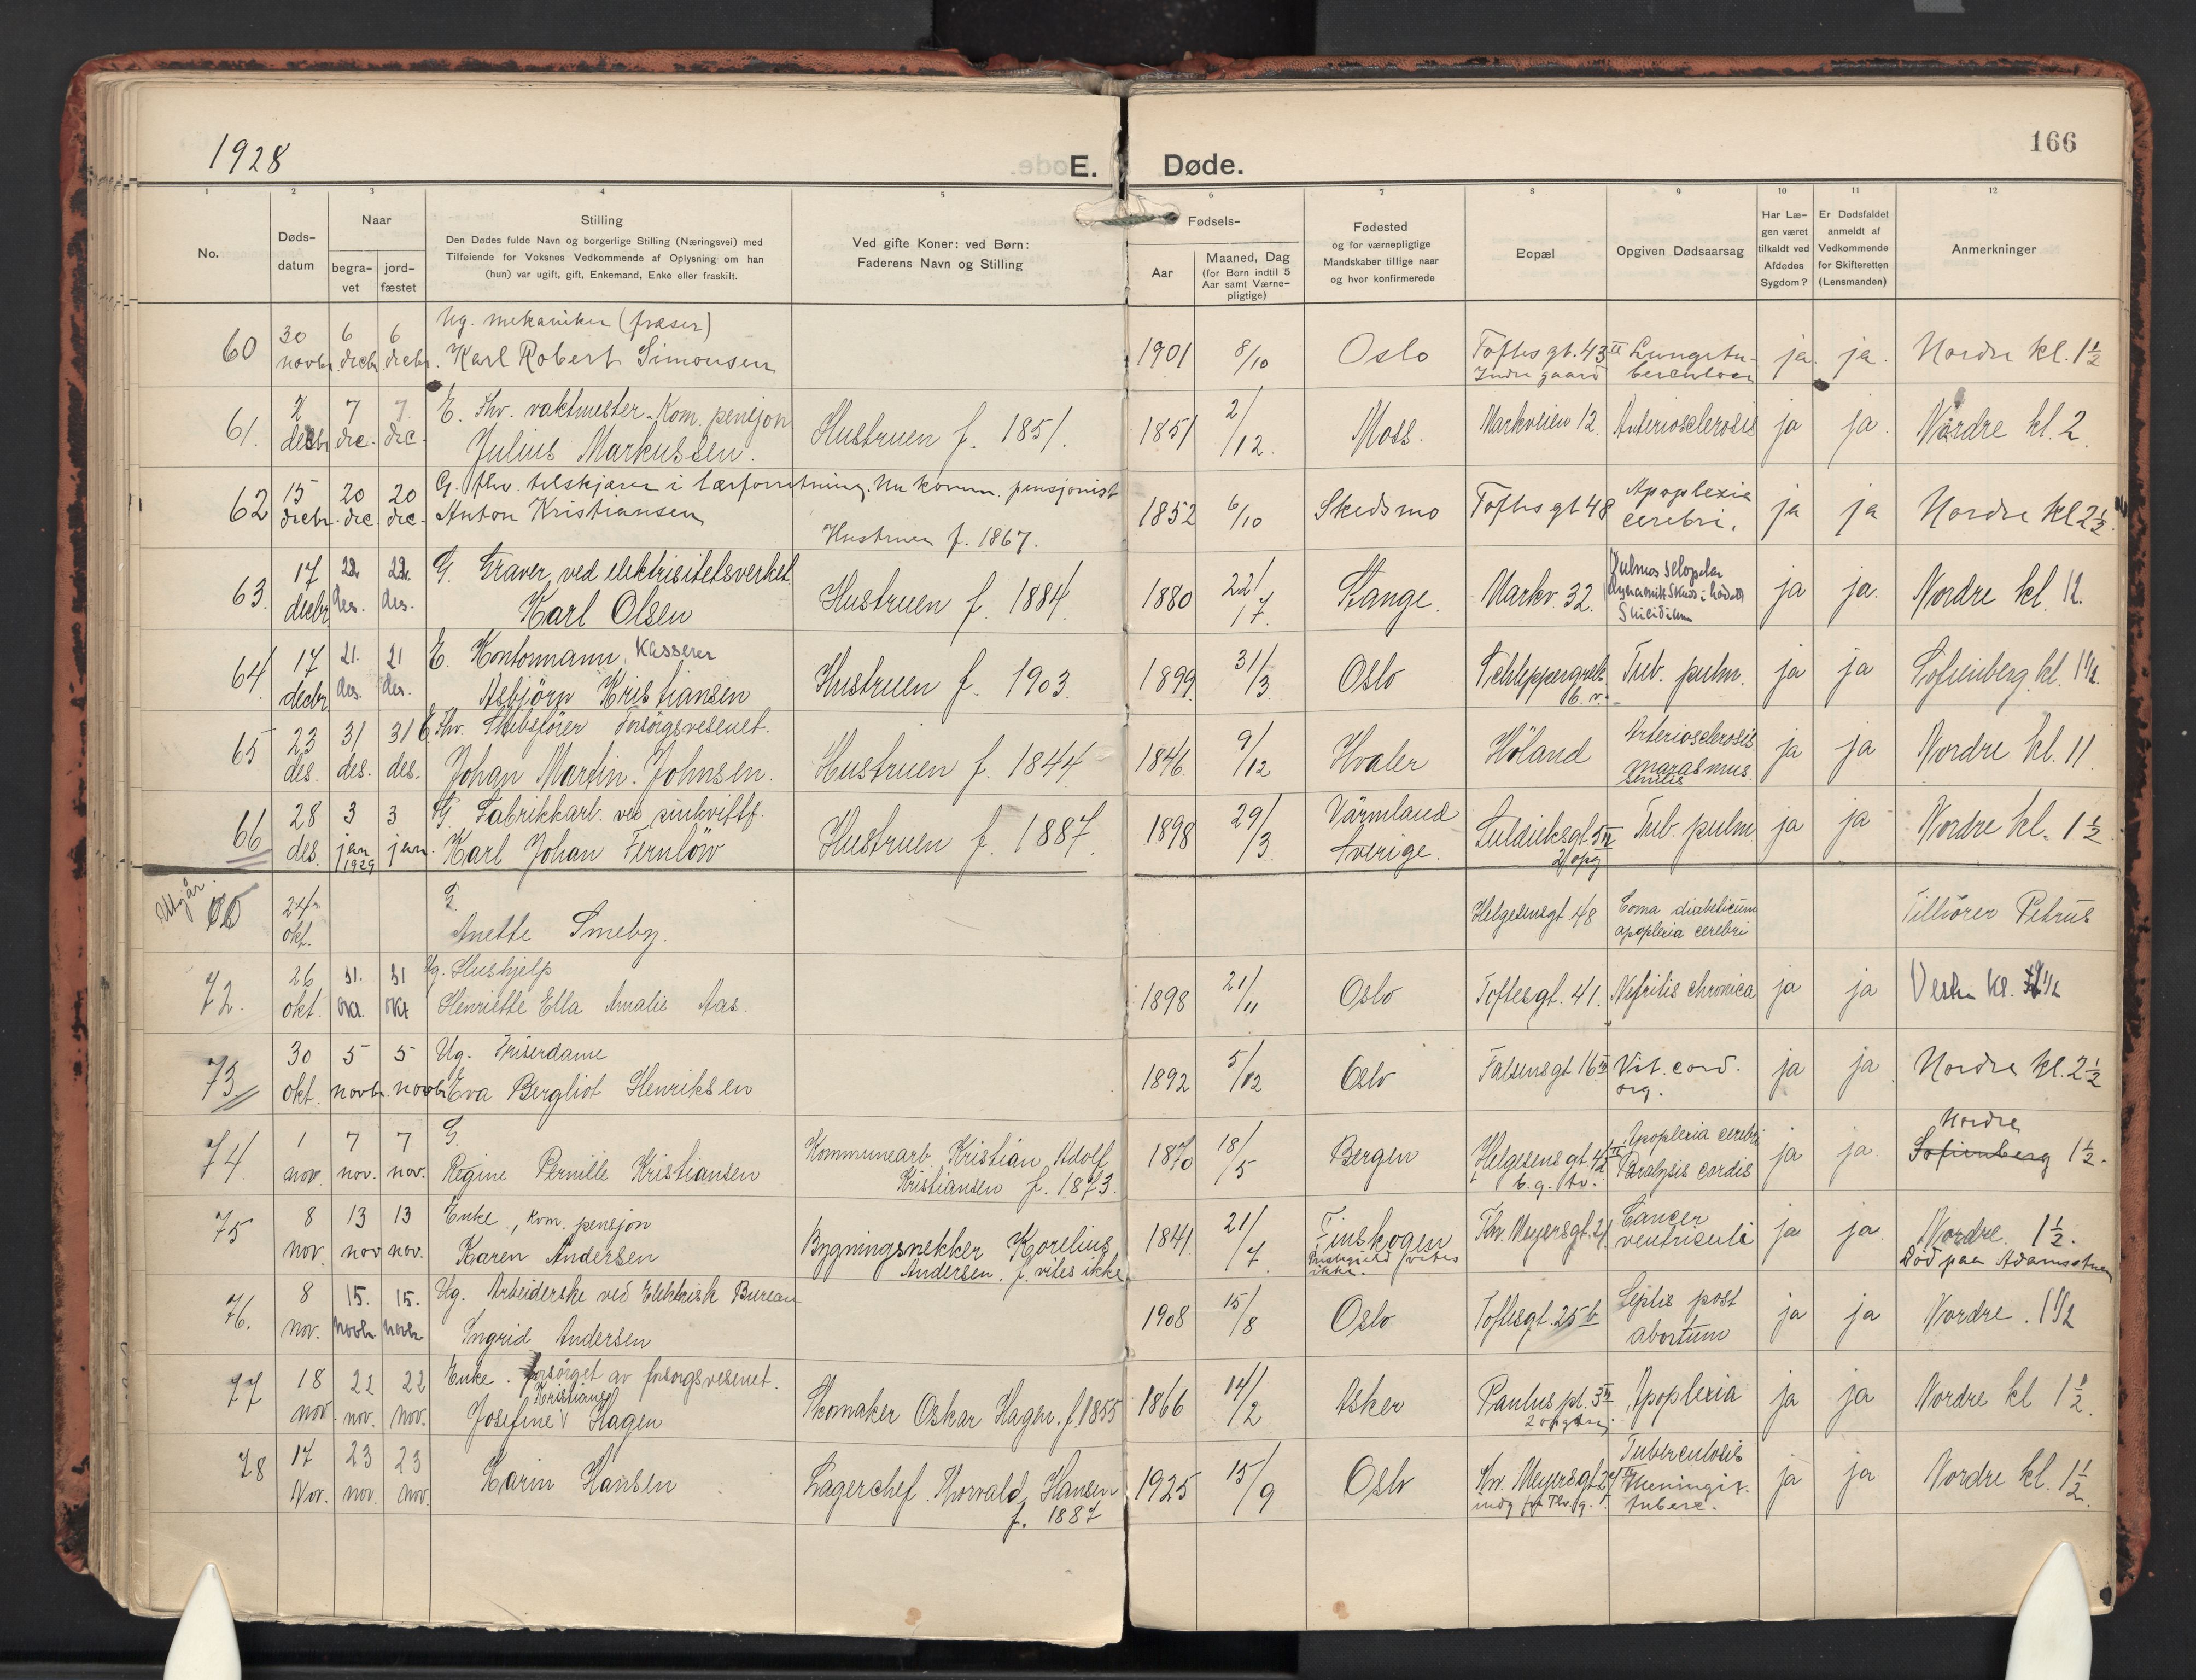 1928
E. Døde.
166
1 2 3 4 5 6 7 8 9 10 11 12
No.
Døds-
datum
Naar
begra-
vet
jord-
fæstet
Stilling
Den Dødes fulde Navn og borgerlige Stilling (Næringsvei) med
Tilføiende for Voksnes Vedkommende af Oplysning om han
(hun) var ugift, gift, Enkemand, Enke eller fraskilt.
Ved gifte Koner: ved Børn:
Faderens Navn og Stilling
Fødsels-
Aar
Maaned, Dag
(for Børn indtil 5
Aar samt Værne-
pligtige)
Fødested
og for værnepligtige
Mandskaber tillige naar
og hvor konfirmerede
Bopæl
Opgiven Dødsaarsag
Har Læ-
gen været
tilkaldt ved
Afdødes
Sygdom?
Er Dødsfaldet
anmeldt af
Vedkommende
for Skifteretten
(Lensmanden)
Anmerkninger
Ug. mekaniker (fræser)
60 30 novbr. 6 decbr. 6 decbr. Karl Robert Simonsen 1901 8/10 Oslo Toftesgt. 43 II Indre gaard Lungetuberculose ja. ja. Nordre kl. 1½
E. Fhv. vaktmester. Kom. pensjon
61. 2 decbr. 7 dec. 7. dec. Julius Markussen. Hustruen f. 1851. 1851 2/12 Moss. Markveien 12. Arteriosclerosis ja ja. Nordre kl. 2
G. fhv. tilskjærer i lærforretning. Nu komm. pensjonist
62 15 decbr. 20 dec. 20 dec. Anton Kristiansen Hustruen f. 1867. 1852 6/10 Skedsmo Toftesgt 48 Apoplexia cerebri. ja ja Nordre kl 2½.
G. Graver ved elektrisitetsverket.
63. 17 decbr. 22. des. 22. des. Karl Olsen Hustruen f. 1884. 1880 22/7. Stange. Markv. 32. ja ja. Nordre kl. 12.
E. Kontormann, Kasserer
64. 17 decbr. 21. des. 21 des. Asbjörn Kristiansen Hustruen f. 1903. 1899 31/3 Oslo Schleppegrells 6. Tub. pulm. ja ja Sofienberg kl. 1½.
E. Fhv. Forsörgsvesenet.
65 23 des. 31 des. 31 des. Johan Martin Johnsen. Hustruen f. 1844 1846. 9/12 Hvaler Höland Arteriosclerosis marasmus senilis ja ja Nordre kl. 11.
G. Fabrikkarb. ved
66 28 des. 3 jan 1929 3 jan. Karl Johan Fernlöw Hustruen f. 1887. 1898 29/3. Värmland Sverige. 2 opg Tub. pulm ja ja Nordre kl. 1½
Utgår.
24. okt. G. Anette Smeby. Helgesensgt. 48 Coma diabeticum apoplexia cerebri Tilhörer Petrus
Ug. Hushjelp
72. 26 okt. 31. okt. 31 okt Henriette Ella Amalie Aas. 1898 21/11 Oslo Toftesgt. 41. Nefritis chronica ja ja Vestre kl.
Ug. Friserdame
73. 30 okt. 5 novbr. 5 novbr Eva Bergliot Henriksen 1892 5/12 Oslo Falsensgt 16 Vit. cord. org. ja ja Nordre kl. 2½
G.
74. 1 nov. 7 nov. 7 nov. Regine Pernille Kristiansen Kommunearb. Kristian Adolf Kristiansen f. 1873. 1870 18/5 Bergen Helgesensgt. Apoplexia cerebri Paralysis cordis ja ja. Nordre Sofienberg 1½.
Enke., kom. pensjon
75 8 nov. 13 nov 13 nov. Karen Andersen Bygningssnekker Korelius Andersen. f. vites ikke 1841. 21/7. Finskogen Thv. Meyersgt. 21 Cancer ventriculi ja ja. Nordre. 1½. Död paa Adamstuen
Ug. Arbeiderske ved Elektrisk Bureau
76. 8 nov. 15. novbr 15. novbr Ingrid Andersen 1908 15/8 Oslo Toftesgt. 25 b Septis post abortum ja ja Nordre. 1½
Enke. forsörget av forsorgsvesenet.
77 18 nov 22 nov. 22 nov. Josefine Kristiane Hagen Skomaker Oskar Hagen. f. 1855 1866 14/2 Asker Paulus pl. 3 Apoplexia ja ja Nordre kl 1½.
78 17 Nov. 23 nov. 23 nov. Karin Hansen Lagerchef. Thorvald Hansen f. 1887 1925 15/9 Oslo Thv. Meyersgt. Tuberculosis Meningit. tuberc. ja ja Nordre kl. 1½.